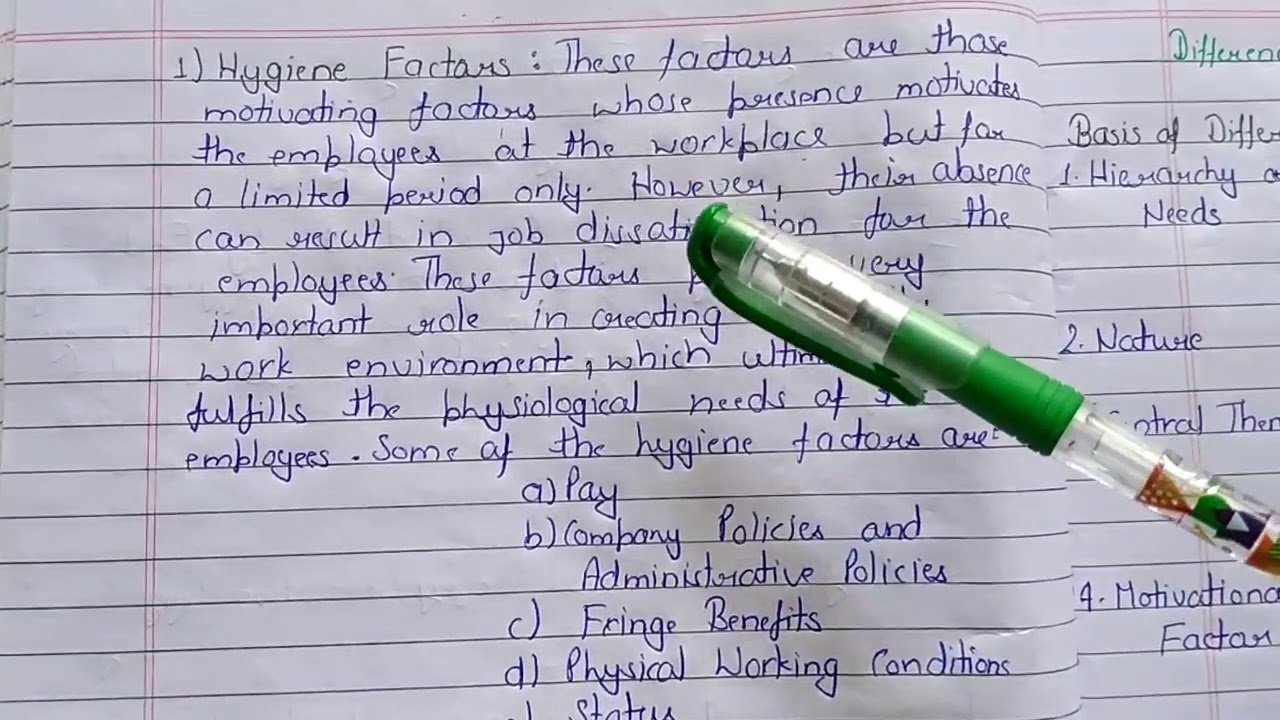 1) Hygiene Factors : These factors are those
motivating factors whose presence motivates
the employees at the workplace but for
a limited period only. However, their absence
can result in job dissati tion for the
employees. These factors very
important role in creating
work environment, which ultim
fulfills the physiological needs of
employees. Some of the hygiene factors are:
a) Pay
b) Company Policies and
Administrative Policies
c) Fringe Benefits
d) Physical Working Conditions
Status
Differen
Basis of Differ
1. Hierarchy o
Needs
2. Nature
ntral Them
4. Motivationa
Factor